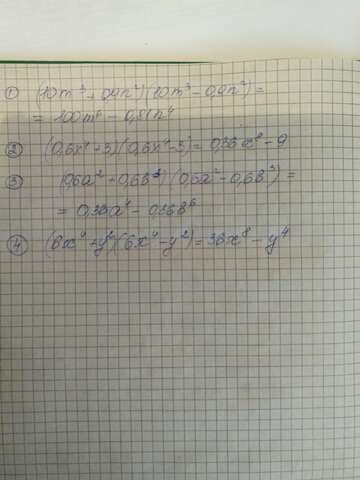 ① (10m³ + 0,9n²)(10m³ - 0,9n²) =
= 100m⁶ - 0,81n⁴
② (0,6x⁴+3)(0,6x⁴-3) = 0,36x⁸ - 9
③ (0,6a² + 0,6b³)(0,6a² - 0,6b³) =
= 0,36a⁴ - 0,36b⁶
④ (6x⁴+y²)(6x⁴-y²) = 36x⁸ - y⁴